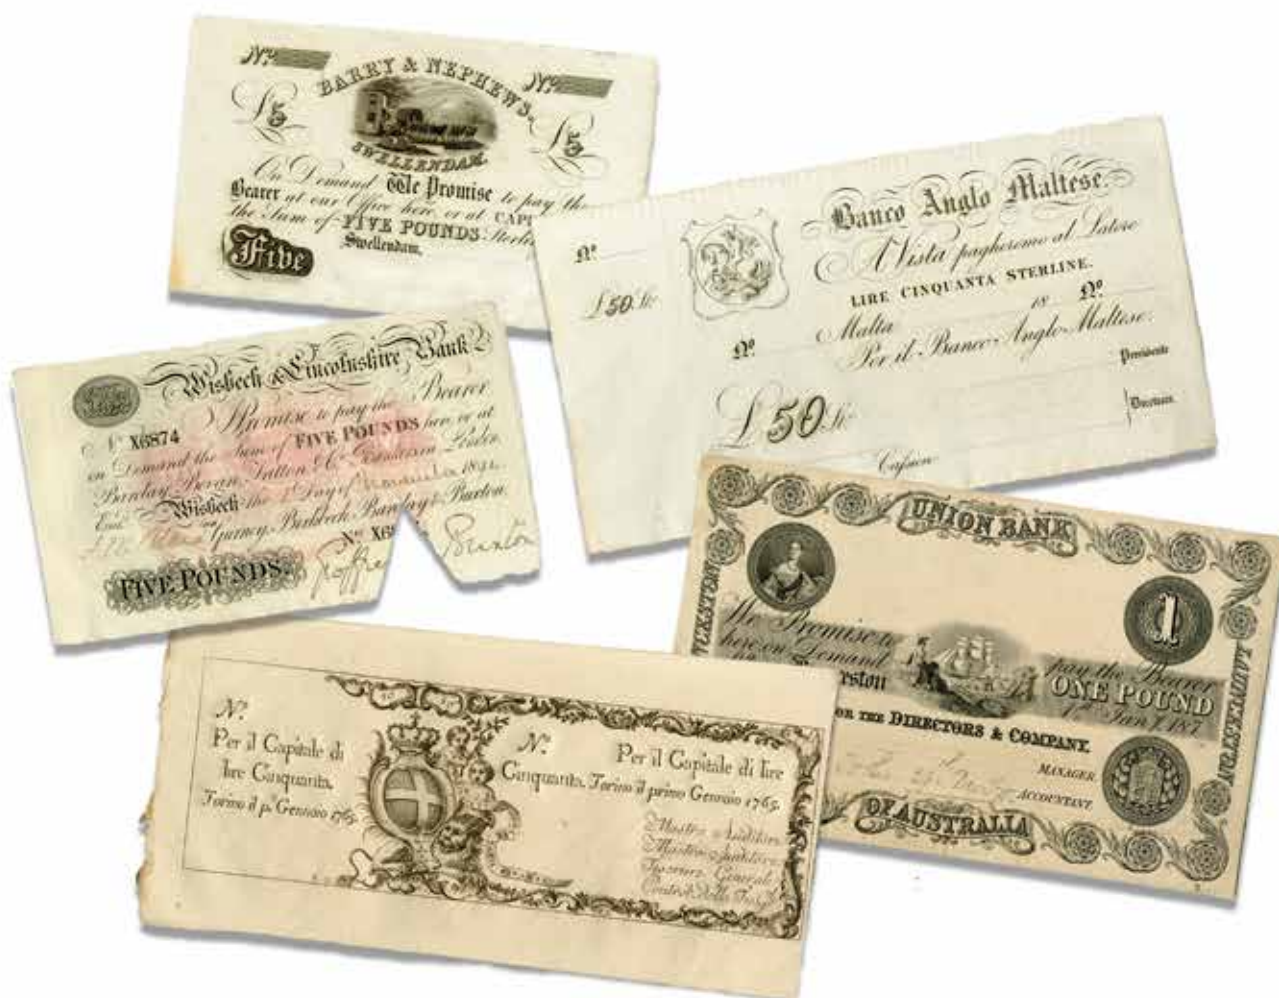 Nº Nº
BARRY & NEPHEWS,
£5 £5
SWELLENDAM.
On Demand We Promise to pay the
Bearer at our Office here, or at
the Sum of FIVE POUNDS
Swellendam,
Five
Banco Anglo Maltese.
A Vista pagheremo al Latore
LIRE CINQUANTA STERLINE.
Nº
£50 St.
Malta 18 Nº
Nº
Per il Banco Anglo-Maltese.
Presidente
£50 St.
Direttori
Cassiere
Wisbech & Lincolnshire Bank
I Promise to pay the Bearer
Nº X6874
on Demand the Sum of FIVE POUNDS here, or at
Barclay, Bevan, Tritton & Co. Bankers London
Wisbech the Day of 1894
Entd.
Gurney, Birkbeck, Barclay & Buxton.
Nº X6
FIVE POUNDS.
Buxton
UNION BANK
LAUNCESTON
1
We Promise to pay the Bearer
here on Demand ONE POUND
1st Jany. 187
FOR THE DIRECTORS & COMPANY.
MANAGER.
ACCOUNTANT.
OF AUSTRALIA
Nº.
Per il Capitale di
lire Cinquanta.
Torino il pº. Gennaio 1765.
Nº. Per il Capitale di lire
Cinquanta. Torino il primo Gennaio 1765.
Mastro Auditore
Mastro Auditore
Tesorier Generale